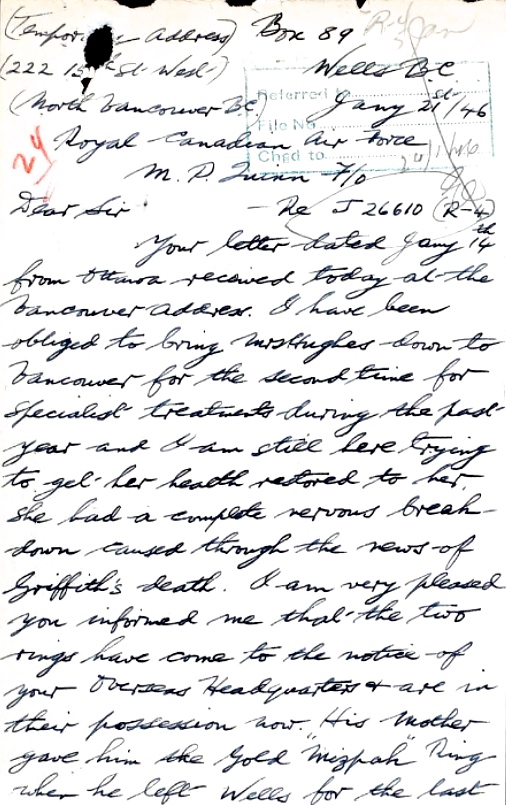 (Tempor Address) Box 89 R-4 Jan
(222 15th St West) Wells BC
(North Vancouver BC) Jany 21st/46
Referred to
File No.
Chgd to
24 Royal Canadian Air Force
M. P. Quinn F/o
Dear Sir - Re J 26610 (R-4)
Your letter dated Jany 14th
from Ottawa received today at the
Vancouver address. I have been
obliged to bring Mrs Hughes down to
Vancouver for the second time for
Specialist treatments during the past
year and I am still here trying
to get her health restored to her
She had a complete nervous break-
down caused through the news of
Griffith's death. I am very pleased
you informed me that the two
rings have come to the notice of
your Overseas Headquarters & are in
their possession now. His Mother
gave him the Gold "Mizpah" Ring
when he left Wells for the last